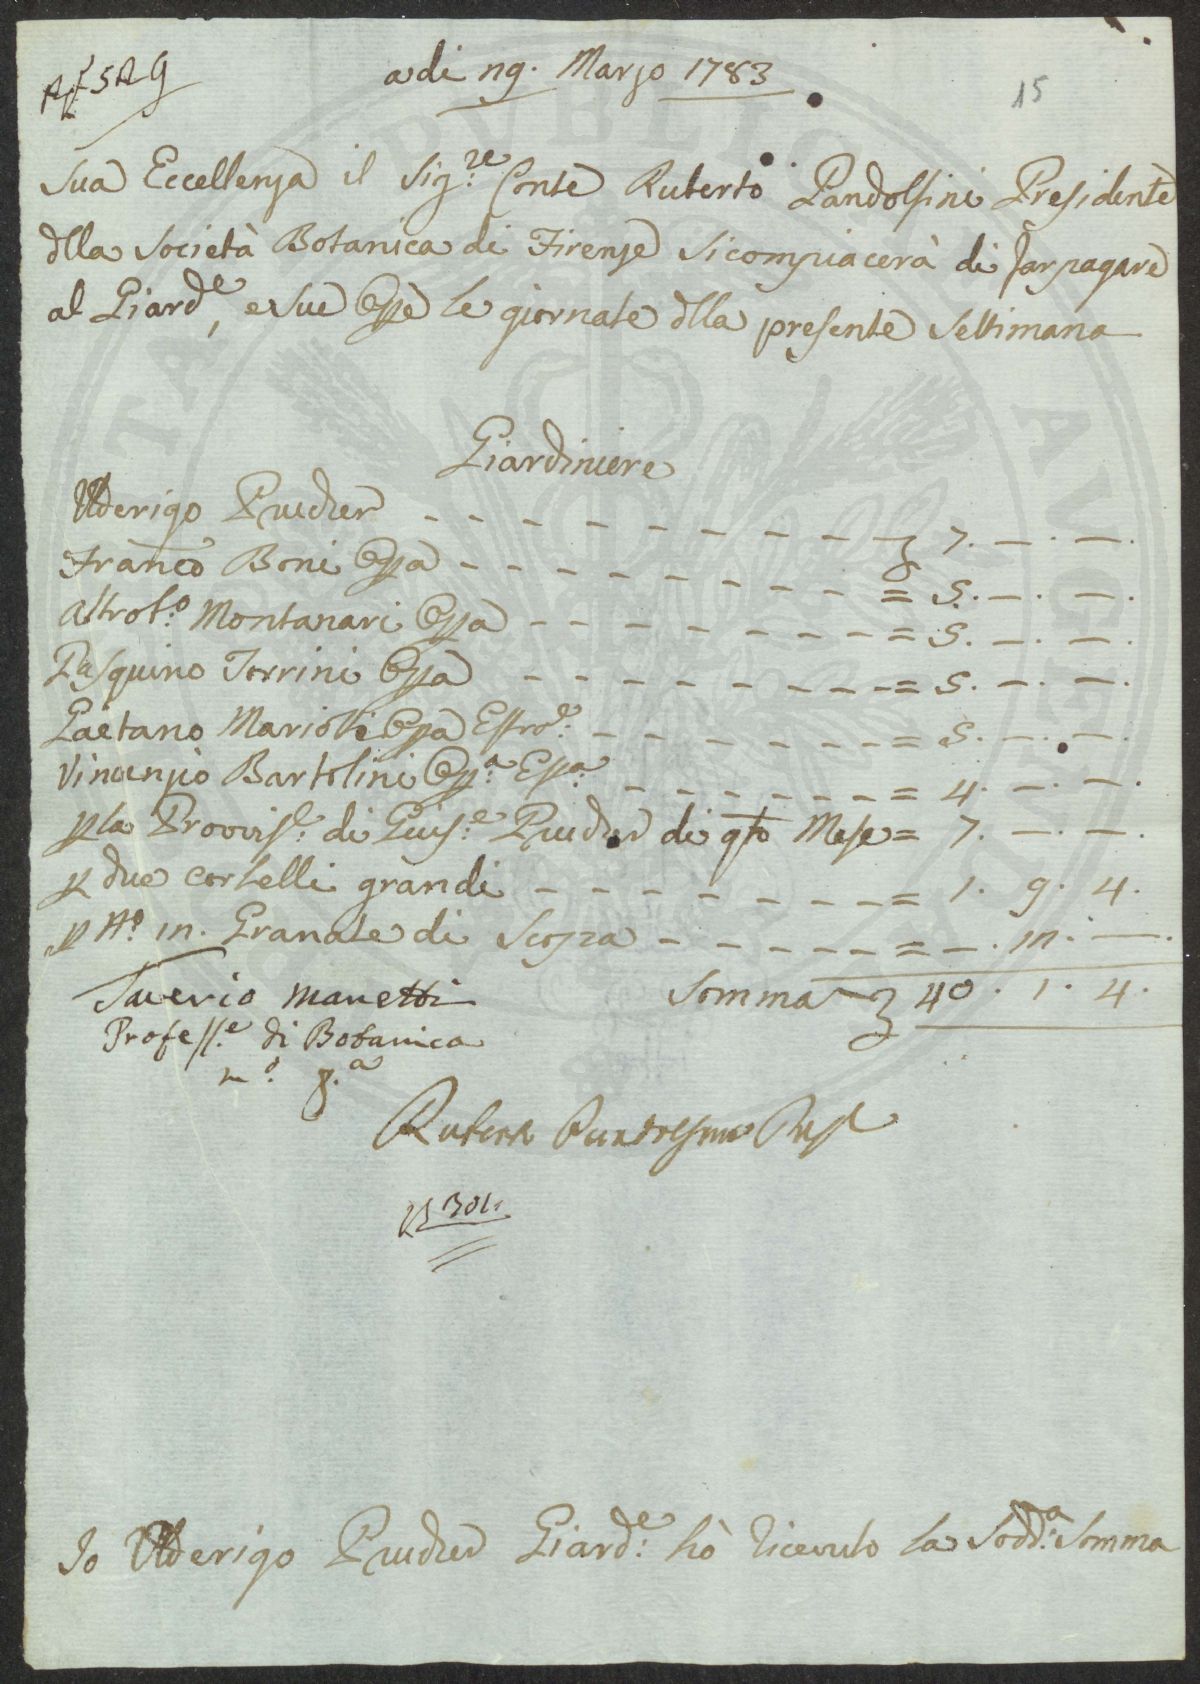 adi 29. Marzo 1783
15
Sua Eccellenza il Sig.re Conte Ruberto Pandolfini Presidente
dlla Società Botanica di Firenze si compiacerà di far pagare
al Giard.e, e sue Oppe le giornate dlla presente Settimana
Giardiniere
Ulderigo Prucher - - - - - - - - - - 7. —. —.
Franco Boni Oppa - - - - - - - - = 5. —. —.
Altrof.o Montanari Oppa - - - - - - - = 5. —. —.
Pasquino Torrini Oppa - - - - - - - = 5. —. —.
Gaetano Marioti Oppa - - - - - - = 5. —. —.
Vincenzio Bartolini Opp.a - - - - - - = 4. —. —.
p la Provvis.e di Giuse.e Prucher di qto Mese = 7. —. —.
p due cortelli grandi - - - - - - - = 1. 9. 4.
p N.o 12. Granate di Scopa - - - - - - = —. 12. —.
Saverio Manetti Somma 40. 1. 4.
Profess.e di Botanica
m.o p.a
Ruberto Pandolfini Pres
Io Ulderigo Prucher Giard.e hò ricevuto la Sodd.a Somma